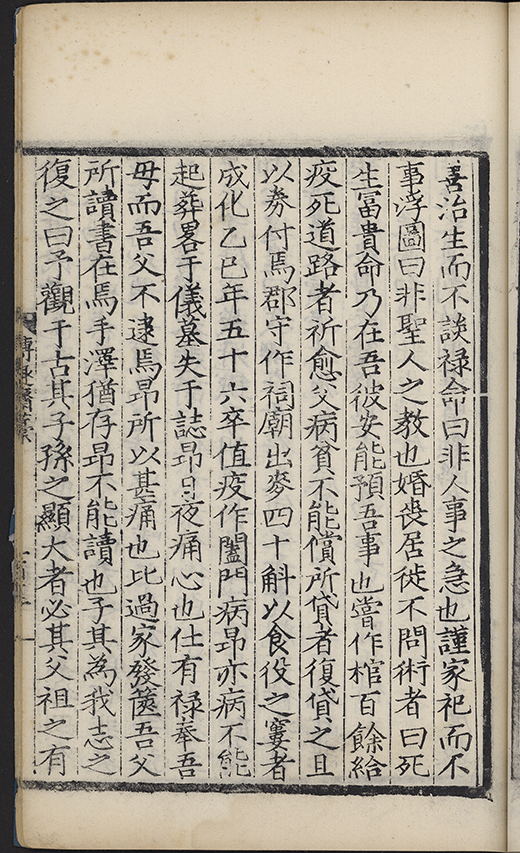 善治生而不談禄命曰非人事之急也謹家祀而不
事浮圖曰非聖人之教也婚喪居徙不問術者曰死
生富貴命乃在吾彼安能預吾事也嘗作棺百餘給
疫死道路者祈愈父病貧不能償所貸者復貸之且
以劵付焉郡守作祠廟出麥四十斛以食役之窶者
成化乙巳年五十六卒值疫作闔門病昂亦病不能
起葬畧于儀墓失于誌昂日夜痛心也仕有禄奉吾
母而吾父不逮焉昂所以甚痛也比過家發篋吾父
所讀書在焉手澤猶存昂不能讀也子其為我志之
復之曰予觀于古其子孫之顯大者必其父祖之有